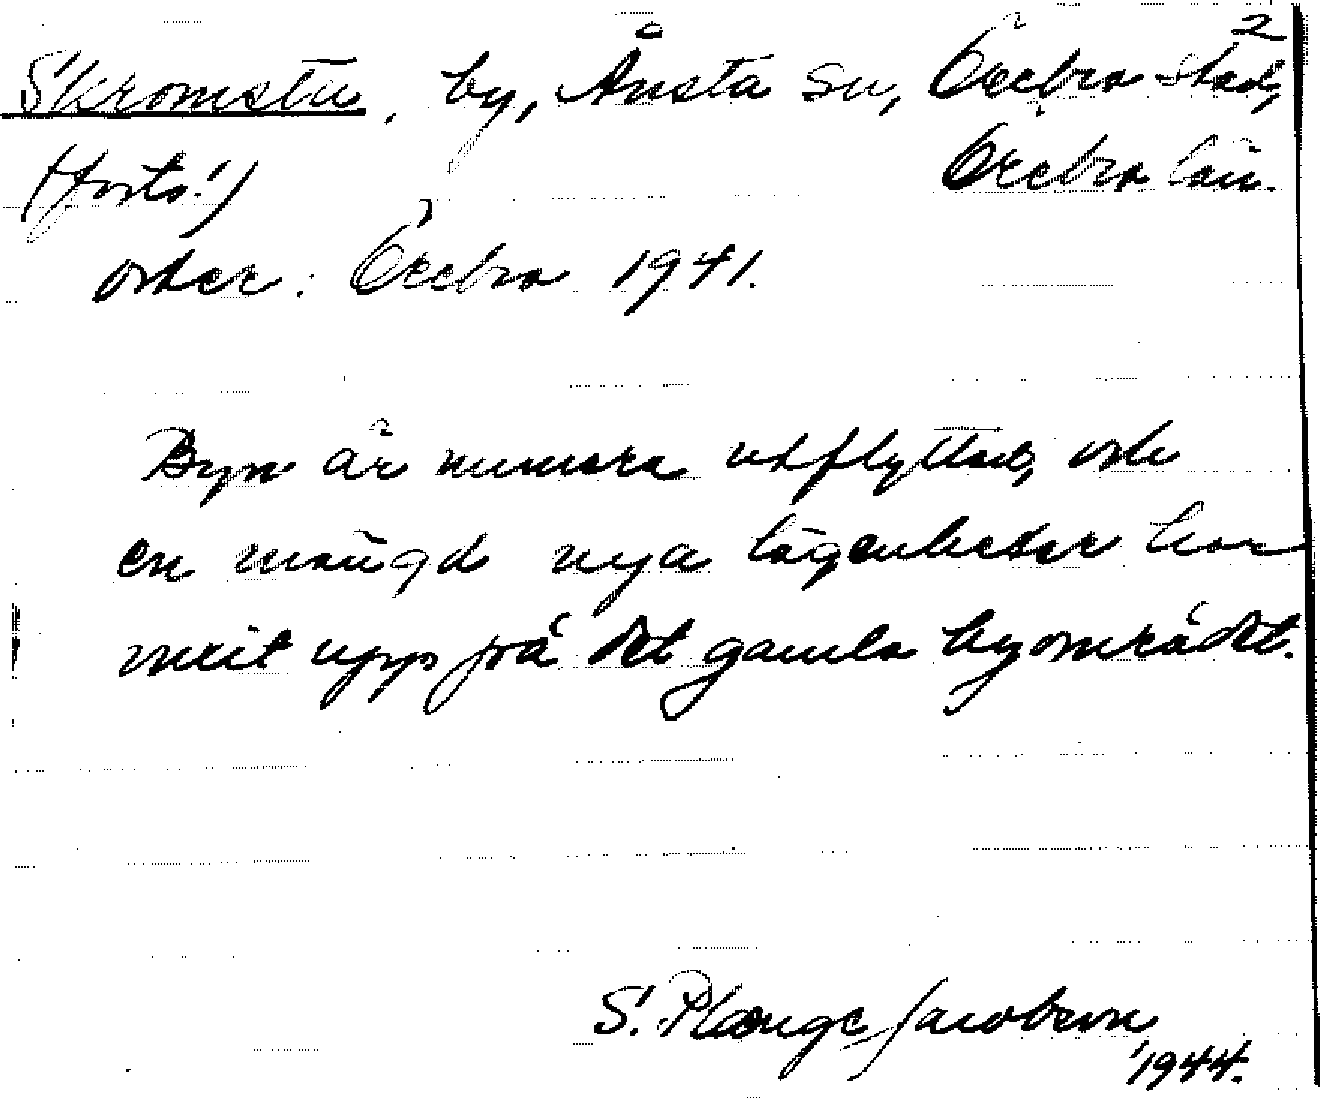 2
Skromsta, by, Ånsta sn, Örebro stad,
(forts.) Örebro län.
: Örebro 1941.
Byn är numera utflyttad, och
en mängd nya lägenheter har
vuxit upp på det gamla byområdet.
S. Plænge Jacobson
1944.